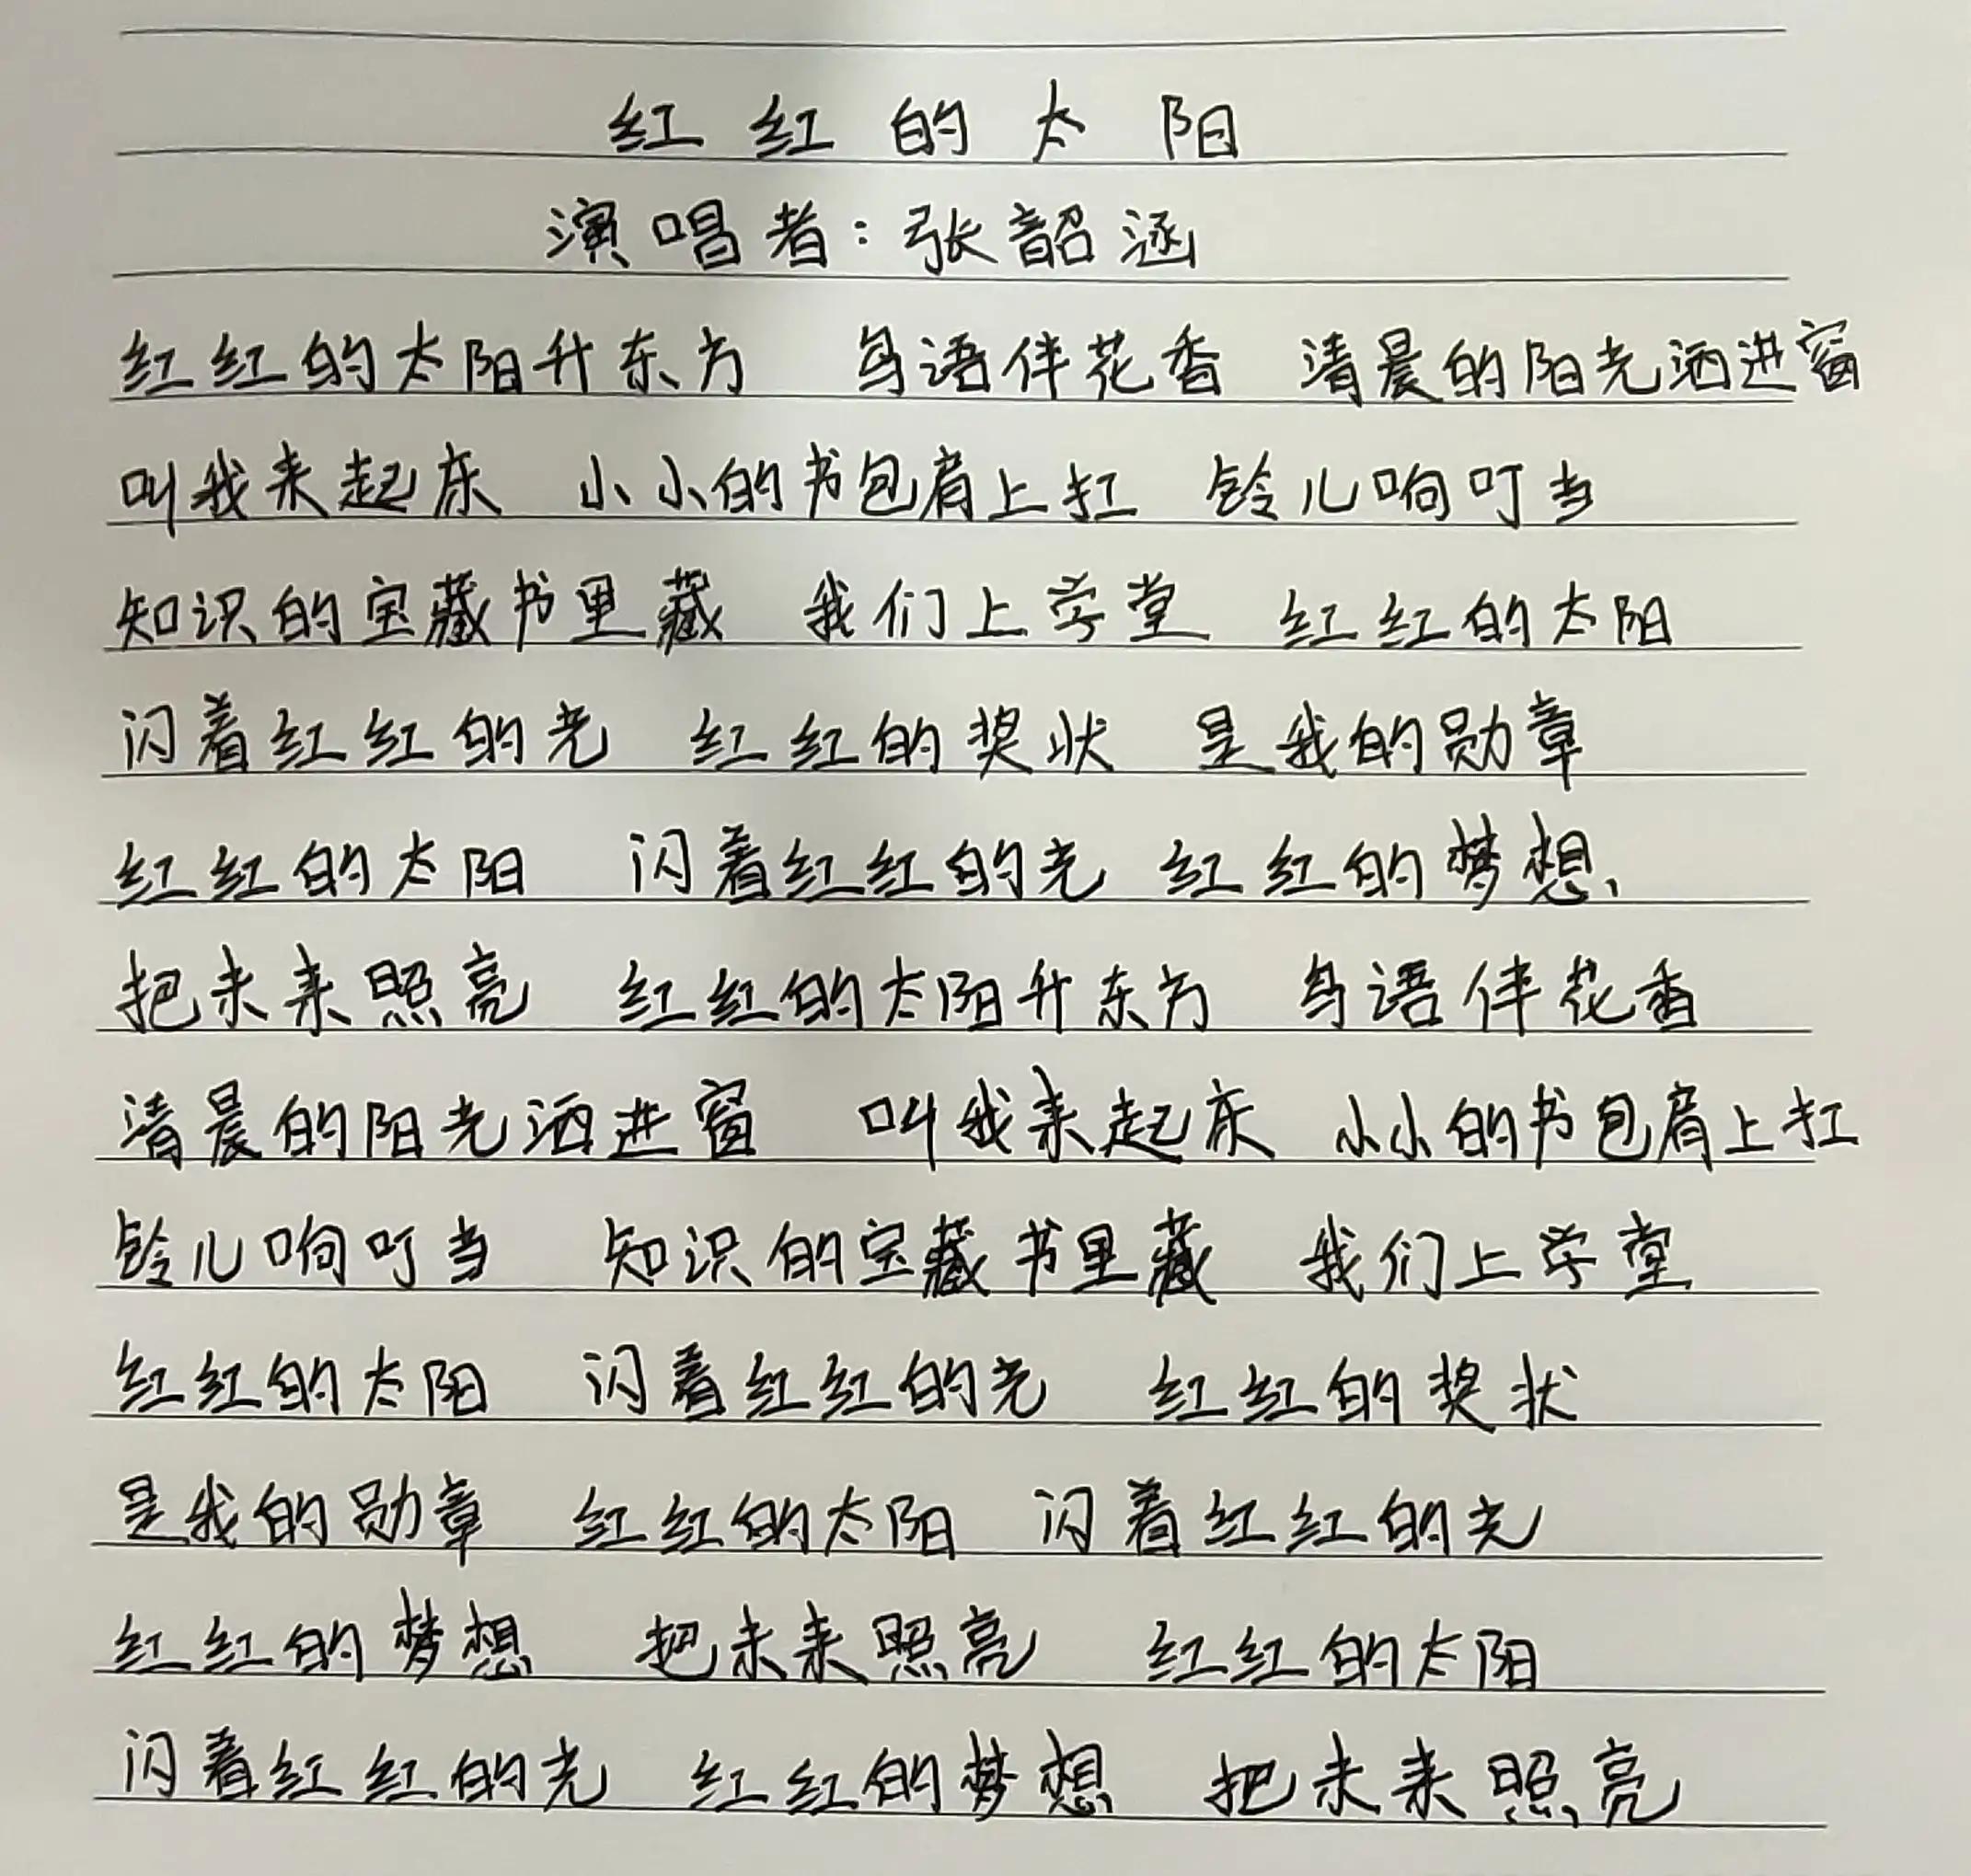 红红的太阳
演唱者：张韶涵
红红的太阳升东方 鸟语伴花香 清晨的阳光洒进窗
叫我来起床 小小的书包肩上扛 铃儿响叮当
知识的宝藏书里藏 我们上学堂 红红的太阳
闪着红红的光 红红的奖状 是我的勋章
红红的太阳 闪着红红的光 红红的梦想、
把未来照亮 红红的太阳升东方 鸟语伴花香
清晨的阳光洒进窗 叫我来起床 小小的书包肩上扛
铃儿响叮当 知识的宝藏书里藏 我们上学堂
红红的太阳 闪着红红的光 红红的奖状
是我的勋章 红红的太阳 闪着红红的光
红红的梦想 把未来照亮 红红的太阳
闪着红红的光 红红的梦想 把未来照亮